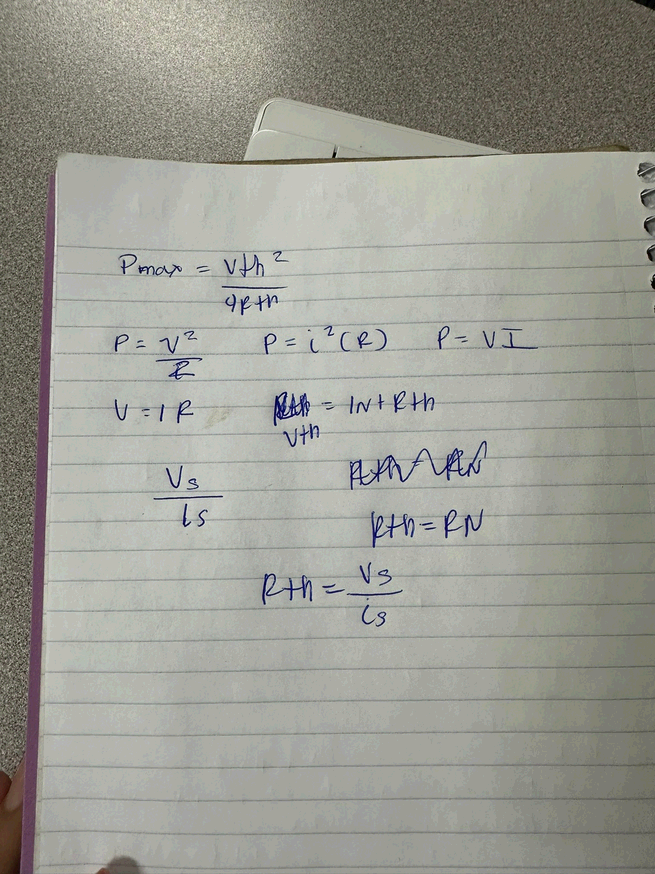 Pmax = Vth²
4Rth
P = V²
R
P = i²(R)
P = VI
V = IR
= IN + Rth
Vth
Vs
is
Rth = RN
Rth = Vs
is